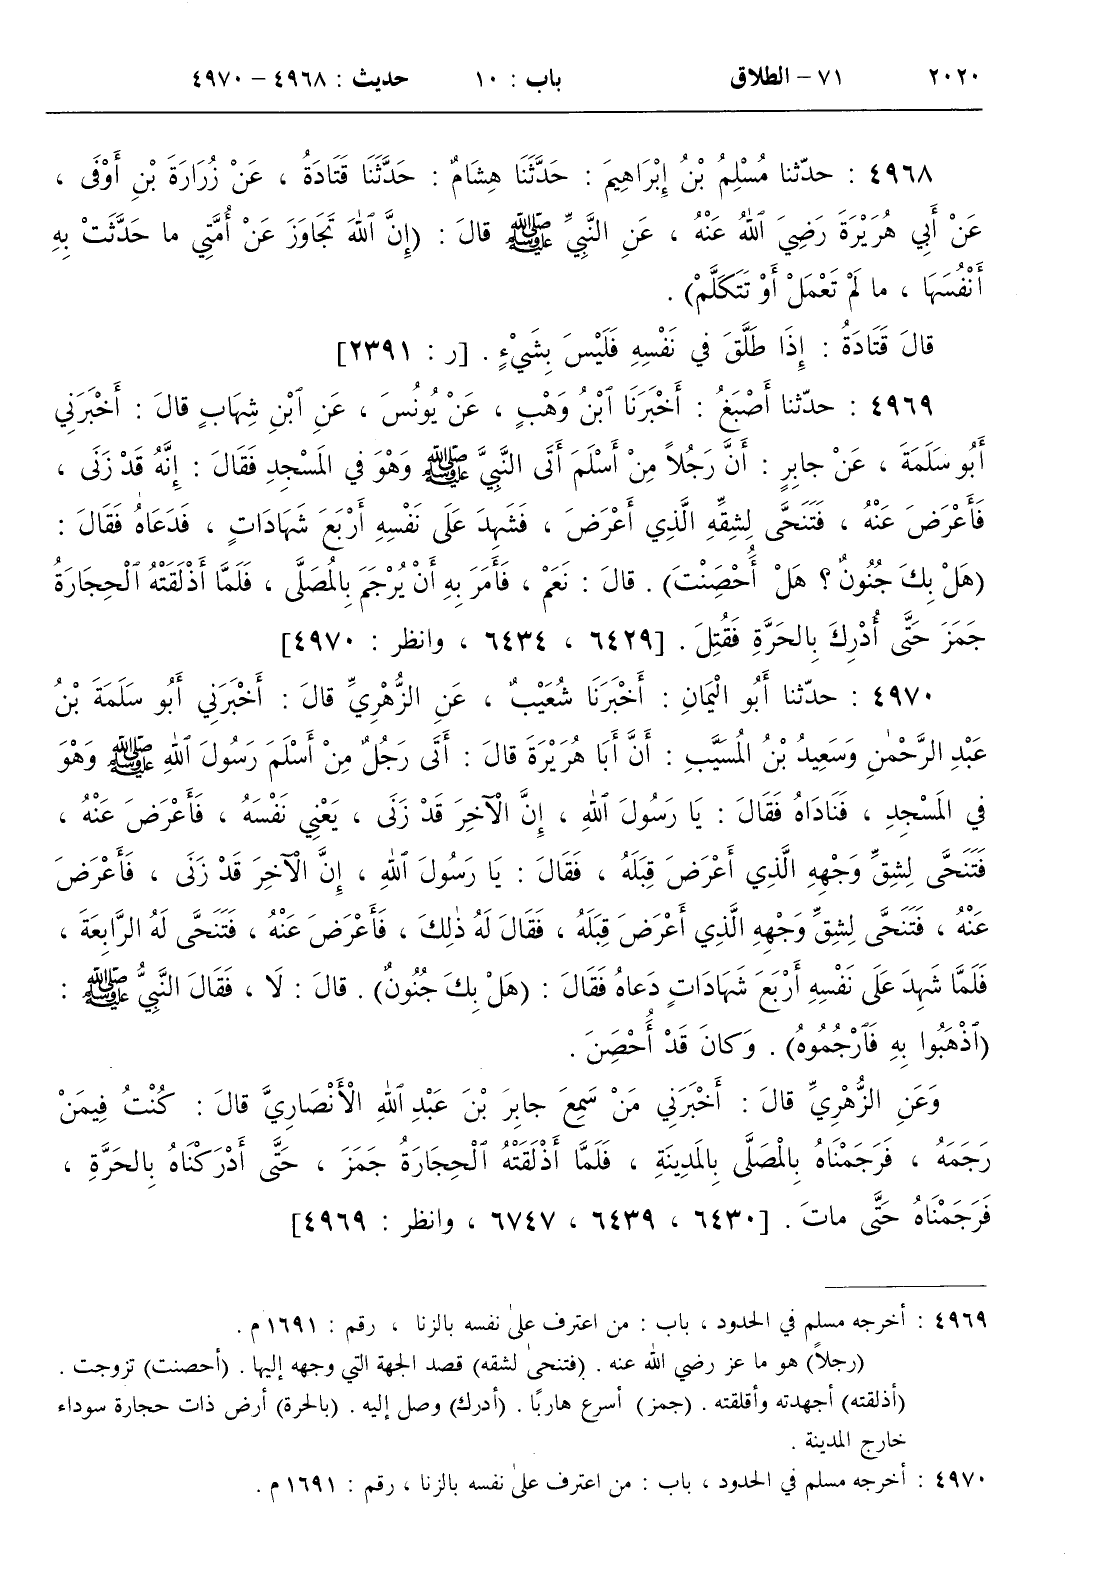 ٢٠٢٠ ٧١ – الطلاق باب : ١٠ حديث : ٤٩٦٨ – ٤٩٧٠
٤٩٦٨ : حدّثنا مُسْلِمُ بْنُ إِبْرَاهِيمَ : حَدَّثَنَا هِشَامٌ : حَدَّثَنَا قَتَادَةُ ، عَنْ زُرَارَةَ بْنِ أَوْفَى ،
عَنْ أَبِي هُرَيْرَةَ رَضِيَ ٱللهُ عَنْهُ ، عَنِ النَّبِيِّ ﷺ قالَ : (إِنَّ ٱللهَ تَجَاوَزَ عَنْ أُمَّتِي ما حَدَّثَتْ بِهِ
أَنْفُسَهَا ، ما لَمْ تَعْمَلْ أَوْ تَتَكَلَّمْ) .
قالَ قَتَادَةُ : إِذَا طَلَّقَ في نَفْسِهِ فَلَيْسَ بِشَيْءٍ . [ر : ٢٣٩١]
٤٩٦٩ : حدّثنا أَصْبَغُ : أَخْبَرَنَا ٱبْنُ وَهْبٍ ، عَنْ يُونُسَ ، عَنِ ٱبْنِ شِهَابٍ قالَ : أَخْبَرَنِي
أَبُو سَلَمَةَ ، عَنْ جابِرٍ : أَنَّ رَجُلاً مِنْ أَسْلَمَ أَتَى النَّبِيَّ ﷺ وَهْوَ في المَسْجِدِ فَقَالَ : إِنَّهُ قَدْ زَنَى ،
فَأَعْرَضَ عَنْهُ ، فَتَنَحَّى لِشِقِّهِ الَّذِي أَعْرَضَ ، فَشَهِدَ عَلَى نَفْسِهِ أَرْبَعَ شَهَادَاتٍ ، فَدَعَاهُ فَقَالَ :
(هَلْ بِكَ جُنُونٌ ؟ هَلْ أُحْصِنْتَ) . قالَ : نَعَمْ ، فَأَمَرَ بِهِ أَنْ يُرْجَمَ بِالْمُصَلَّى ، فَلَمَّا أَذْلَقَتْهُ ٱلْحِجَارَةُ
جَمَزَ حَتَّى أُدْرِكَ بِالحَرَّةِ فَقُتِلَ . [٦٤٢٩ ، ٦٤٣٤ ، وانظر : ٤٩٧٠]
٤٩٧٠ : حدّثنا أَبُو الْيَمَانِ : أَخْبَرَنَا شُعَيْبٌ ، عَنِ الزُّهْرِيِّ قالَ : أَخْبَرَنِي أَبُو سَلَمَةَ بْنُ
عَبْدِ الرَّحْمٰنِ وَسَعِيدُ بْنُ المُسَيَّبِ : أَنَّ أَبَا هُرَيْرَةَ قالَ : أَتَى رَجُلٌ مِنْ أَسْلَمَ رَسُولَ ٱللهِ ﷺ وَهْوَ
في المَسْجِدِ ، فَنَادَاهُ فَقَالَ : يَا رَسُولَ ٱللهِ ، إِنَّ الْآخِرَ قَدْ زَنَى ، يَعْنِي نَفْسَهُ ، فَأَعْرَضَ عَنْهُ ،
فَتَنَحَّى لِشِقِّ وَجْهِهِ الَّذِي أَعْرَضَ قِبَلَهُ ، فَقَالَ : يَا رَسُولَ ٱللهِ ، إِنَّ الْآخِرَ قَدْ زَنَى ، فَأَعْرَضَ
عَنْهُ ، فَتَنَحَّى لِشِقِّ وَجْهِهِ الَّذِي أَعْرَضَ قِبَلَهُ ، فَقَالَ لَهُ ذٰلِكَ ، فَأَعْرَضَ عَنْهُ ، فَتَنَحَّى لَهُ الرَّابِعَةَ ،
فَلَمَّا شَهِدَ عَلَى نَفْسِهِ أَرْبَعَ شَهَادَاتٍ دَعاهُ فَقَالَ : (هَلْ بِكَ جُنُونٌ) . قالَ : لَا ، فَقَالَ النَّبِيُّ ﷺ :
(ٱذْهَبُوا بِهِ فَٱرْجُمُوهُ) . وَكانَ قَدْ أُحْصِنَ .
وَعَنِ الزُّهْرِيِّ قالَ : أَخْبَرَنِي مَنْ سَمِعَ جابِرَ بْنَ عَبْدِ ٱللهِ الْأَنْصَارِيَّ قالَ : كُنْتُ فِيمَنْ
رَجَمَهُ ، فَرَجَمْنَاهُ بِالْمُصَلَّى بِالمَدِينَةِ ، فَلَمَّا أَذْلَقَتْهُ ٱلْحِجَارَةُ جَمَزَ ، حَتَّى أَدْرَكْنَاهُ بِالحَرَّةِ ،
فَرَجَمْنَاهُ حَتَّى ماتَ . [٦٤٣٠ ، ٦٤٣٩ ، ٦٧٤٧ ، وانظر : ٤٩٦٩]
٤٩٦٩ : أخرجه مسلم في الحدود ، باب : من اعترف علىٰ نفسه بالزنا ، رقم : ١٦٩١ م .
(رجلاً) هو ما عز رضي الله عنه . (فتنحىٰ لشقه) قصد الجهة التي وجهه إليها . (أحصنت) تزوجت .
(أذلقته) أجهدته وأقلقته . (جمز) أسرع هاربًا . (أدرك) وصل إليه . (بالحرة) أرض ذات حجارة سوداء
خارج المدينة .
٤٩٧٠ : أخرجه مسلم في الحدود ، باب : من اعترف علىٰ نفسه بالزنا ، رقم : ١٦٩١ م .